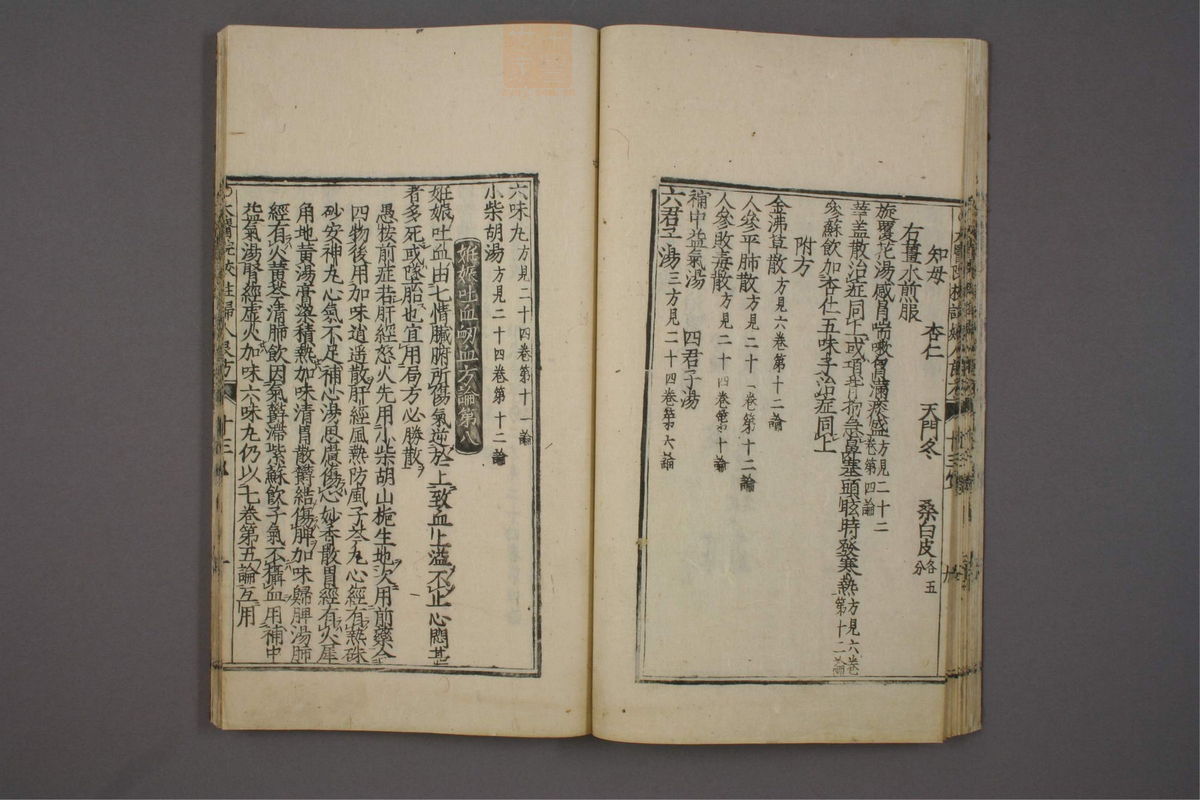 知母　杏仁　天門冬　桑白皮各五分
右薑水煎服
旋覆花湯感冒喘嗽胷滿痰盛方見二十二卷第四論
華盖散治症同上或項背拘急鼻塞頭眩時發寒熱方見六卷第十二論
參蘇飲加杏仁五味子治症同上
附方
金沸草散方見六卷第十二論
人參平肺散方見二十一卷第十二論
人參敗毒散方見二十四卷第十論
補中益氣湯　四君子湯
六君子湯三方見二十四卷第六論
六味丸方見二十四卷第十一論
小柴胡湯方見二十四卷第十二論
妊娠吐血衂血方論第八
妊娠吐血由七情臟腑所傷氣逆於上致血上溢不止心悶甚
者多死或墜胎也宜用局方必勝散
愚按前症若肝經怒火先用小柴胡山梔生地次用前藥合
四物後用加味逍遥散肝經風熱防風子芩丸心經有熱硃
砂安神丸心氣不足補心湯思慮傷心妙香散胃經有火犀
角地黄湯膏粱積熱加味清胃散欝結傷脾加味歸脾湯肺
經有火黄芩清肺飲因氣欝滯紫蘇飲子氣不攝血用補中
益氣湯腎經虚火加味六味丸仍以七卷第五論互用